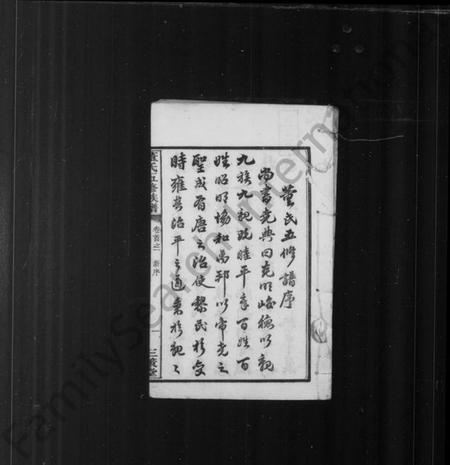 董氏五修譜序
尚書堯典曰克明峻德以親
九族九親既睦平章百姓百
姓昭明協和萬邦以帝堯之
聖成有唐之治使黎民於變
時雍其治平之通東於親
董氏五修族譜
卷首之一 新序
三發堂
FamilySearch International